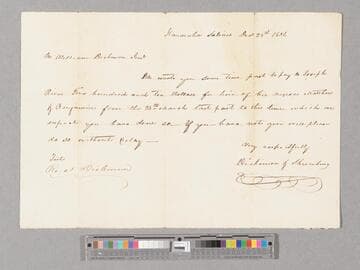 Kanawha Salines Dec 25th 18
Mr William Dickinson Jun
We wrote you some time past to pay to Joseph
two hundred and ten Dollars for hire of his negroes
& Benjamin from the 20th March last past to this time which we
expect you have done so If you have not you will please
do so without delay —
Very respectfully
Dickinson & Shrewsbury